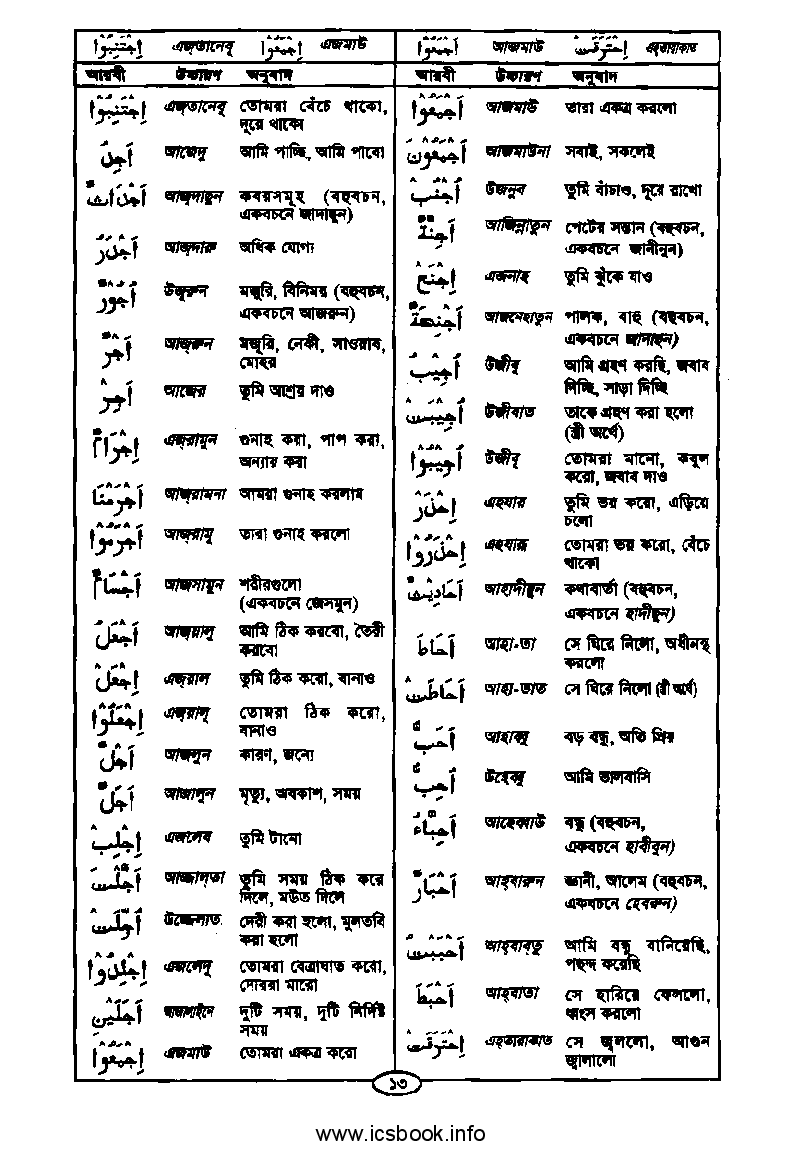 اِجْتَنِبُوْا এজতানেবু اِجْمَعُوْا এজমাউ
আরবী উচ্চারণ অনুবাদ
اِجْتَنِبُوْا এজ্‌তানেবু তোমরা বেঁচে থাকো,
দূরে থাকো
اَجِدُ আজেদু আমি পাচ্ছি, আমি পাবো
اَجْدَاثٌ আজ্‌দাছুন কবরসমূহ (বহুবচন,
একবচনে জাদাছুন)
اَجْدَرُ আজ্‌দারু অধিক যোগ্য
اُجُوْرٌ উজুরুন মজুরি, বিনিময় (বহুবচন,
একবচনে আজরুন)
اَجْرٌ আজ্‌রুন মজুরি, নেকী, সাওয়াব,
মোহর
اَجِرْ আজের তুমি আশ্রয় দাও
اِجْرَامٌ এজ্‌রামুন গুনাহ করা, পাপ করা,
অন্যায় করা
اَجْرَمْنَا আজ্‌রামনা আমরা গুনাহ করলাম
اَجْرَمُوْا আজ্‌রামু তারা গুনাহ করলো
اَجْسَامٌ আজসামুন শরীরগুলো
(একবচনে জেসমুন)
اَجْعَلُ আজ্‌য়ালু আমি ঠিক করবো, তৈরী
করবো
اِجْعَلْ এজ্‌য়াল তুমি ঠিক করো, বানাও
اِجْعَلُوْا এজ্‌য়ালু তোমরা ঠিক করো,
বানাও
اَجْلٌ আজলুন কারণ, জন্যে
اَجَلٌ আজালুন মৃত্যু, অবকাশ, সময়
اِجْلِبْ এজলেব তুমি টানো
اَجَّلْتَ আজ্জালতা তুমি সময় ঠিক করে
দিলে, মউত দিলে
اُجِّلَتْ উজ্জেলাত দেরী করা হলো, মুলতবি
করা হলো
اِجْلِدُوْا এজলেদু তোমরা বেত্রাঘাত করো,
দোররা মারো
اَجَلَيْنِ আজালাইনে দুটি সময়, দুটি নির্দিষ্ট
সময়
اِجْمَعُوْا এজমাউ তোমরা একত্র করো
اَجْمَعُوْا আজমাউ اِحْتَرَقَتْ এহতারাকাত
আরবী উচ্চারণ অনুবাদ
اَجْمَعُوْا আজমাউ তারা একত্র করলো
اَجْمَعُوْنَ আজমাউনা সবাই, সকলেই
اُجْنُبْ উজনুব তুমি বাঁচাও, দূরে রাখো
اَجِنَّةٌ আজিন্নাতুন পেটের সন্তান (বহুবচন,
একবচনে জানীনুন)
اِجْنَحْ এজনাহ তুমি ঝুঁকে যাও
اَجْنِحَةٌ আজনেহাতুন পালক, বাহু (বহুবচন,
একবচনে জানাহুন)
اُجِيْبُ উজীবু আমি গ্রহণ করছি, জবাব
দিচ্ছি, সাড়া দিচ্ছি
اُجِيْبَتْ উজীবাত তাকে গ্রহণ করা হলো
(স্ত্রী অর্থে)
اُجِيْبُوْا উজীবু তোমরা মানো, কবুল
করো, জবাব দাও
اِحْذَرْ এহযার তুমি ভয় করো, এড়িয়ে
চলো
اِحْذَرُوْا এহযারু তোমরা ভয় করো, বেঁচে
থাকো
اَحَادِيْثُ আহাদীছুন কথাবার্তা (বহুবচন,
একবচনে হাদীছুন)
اَحَاطَ আহা-তা সে ঘিরে নিলো, অধীনস্থ
করলো
اَحَاطَتْ আহা-তাত সে ঘিরে নিলো (স্ত্রী অর্থে)
اَحَبُّ আহাব্বু বড় বন্ধু, অতি প্রিয়
اُحِبُّ উহেব্বু আমি ভালবাসি
اَحِبَّاءُ আহেব্বাউ বন্ধু (বহুবচন,
একবচনে হাবীবুন)
اَحْبَارٌ আহ্‌বারুন জ্ঞানী, আলেম (বহুবচন,
একবচনে হেবরুন)
اَحْبَبْتُ আহ্‌বাবতু আমি বন্ধু বানিয়েছি,
পছন্দ করেছি
اَحْبَطَ আহ্‌বাতা সে হারিয়ে ফেললো,
ধ্বংস করলো
اِحْتَرَقَتْ এহ্‌তারাকাত সে জ্বললো, আগুন
জ্বালালো
১৩
www.icsbook.info